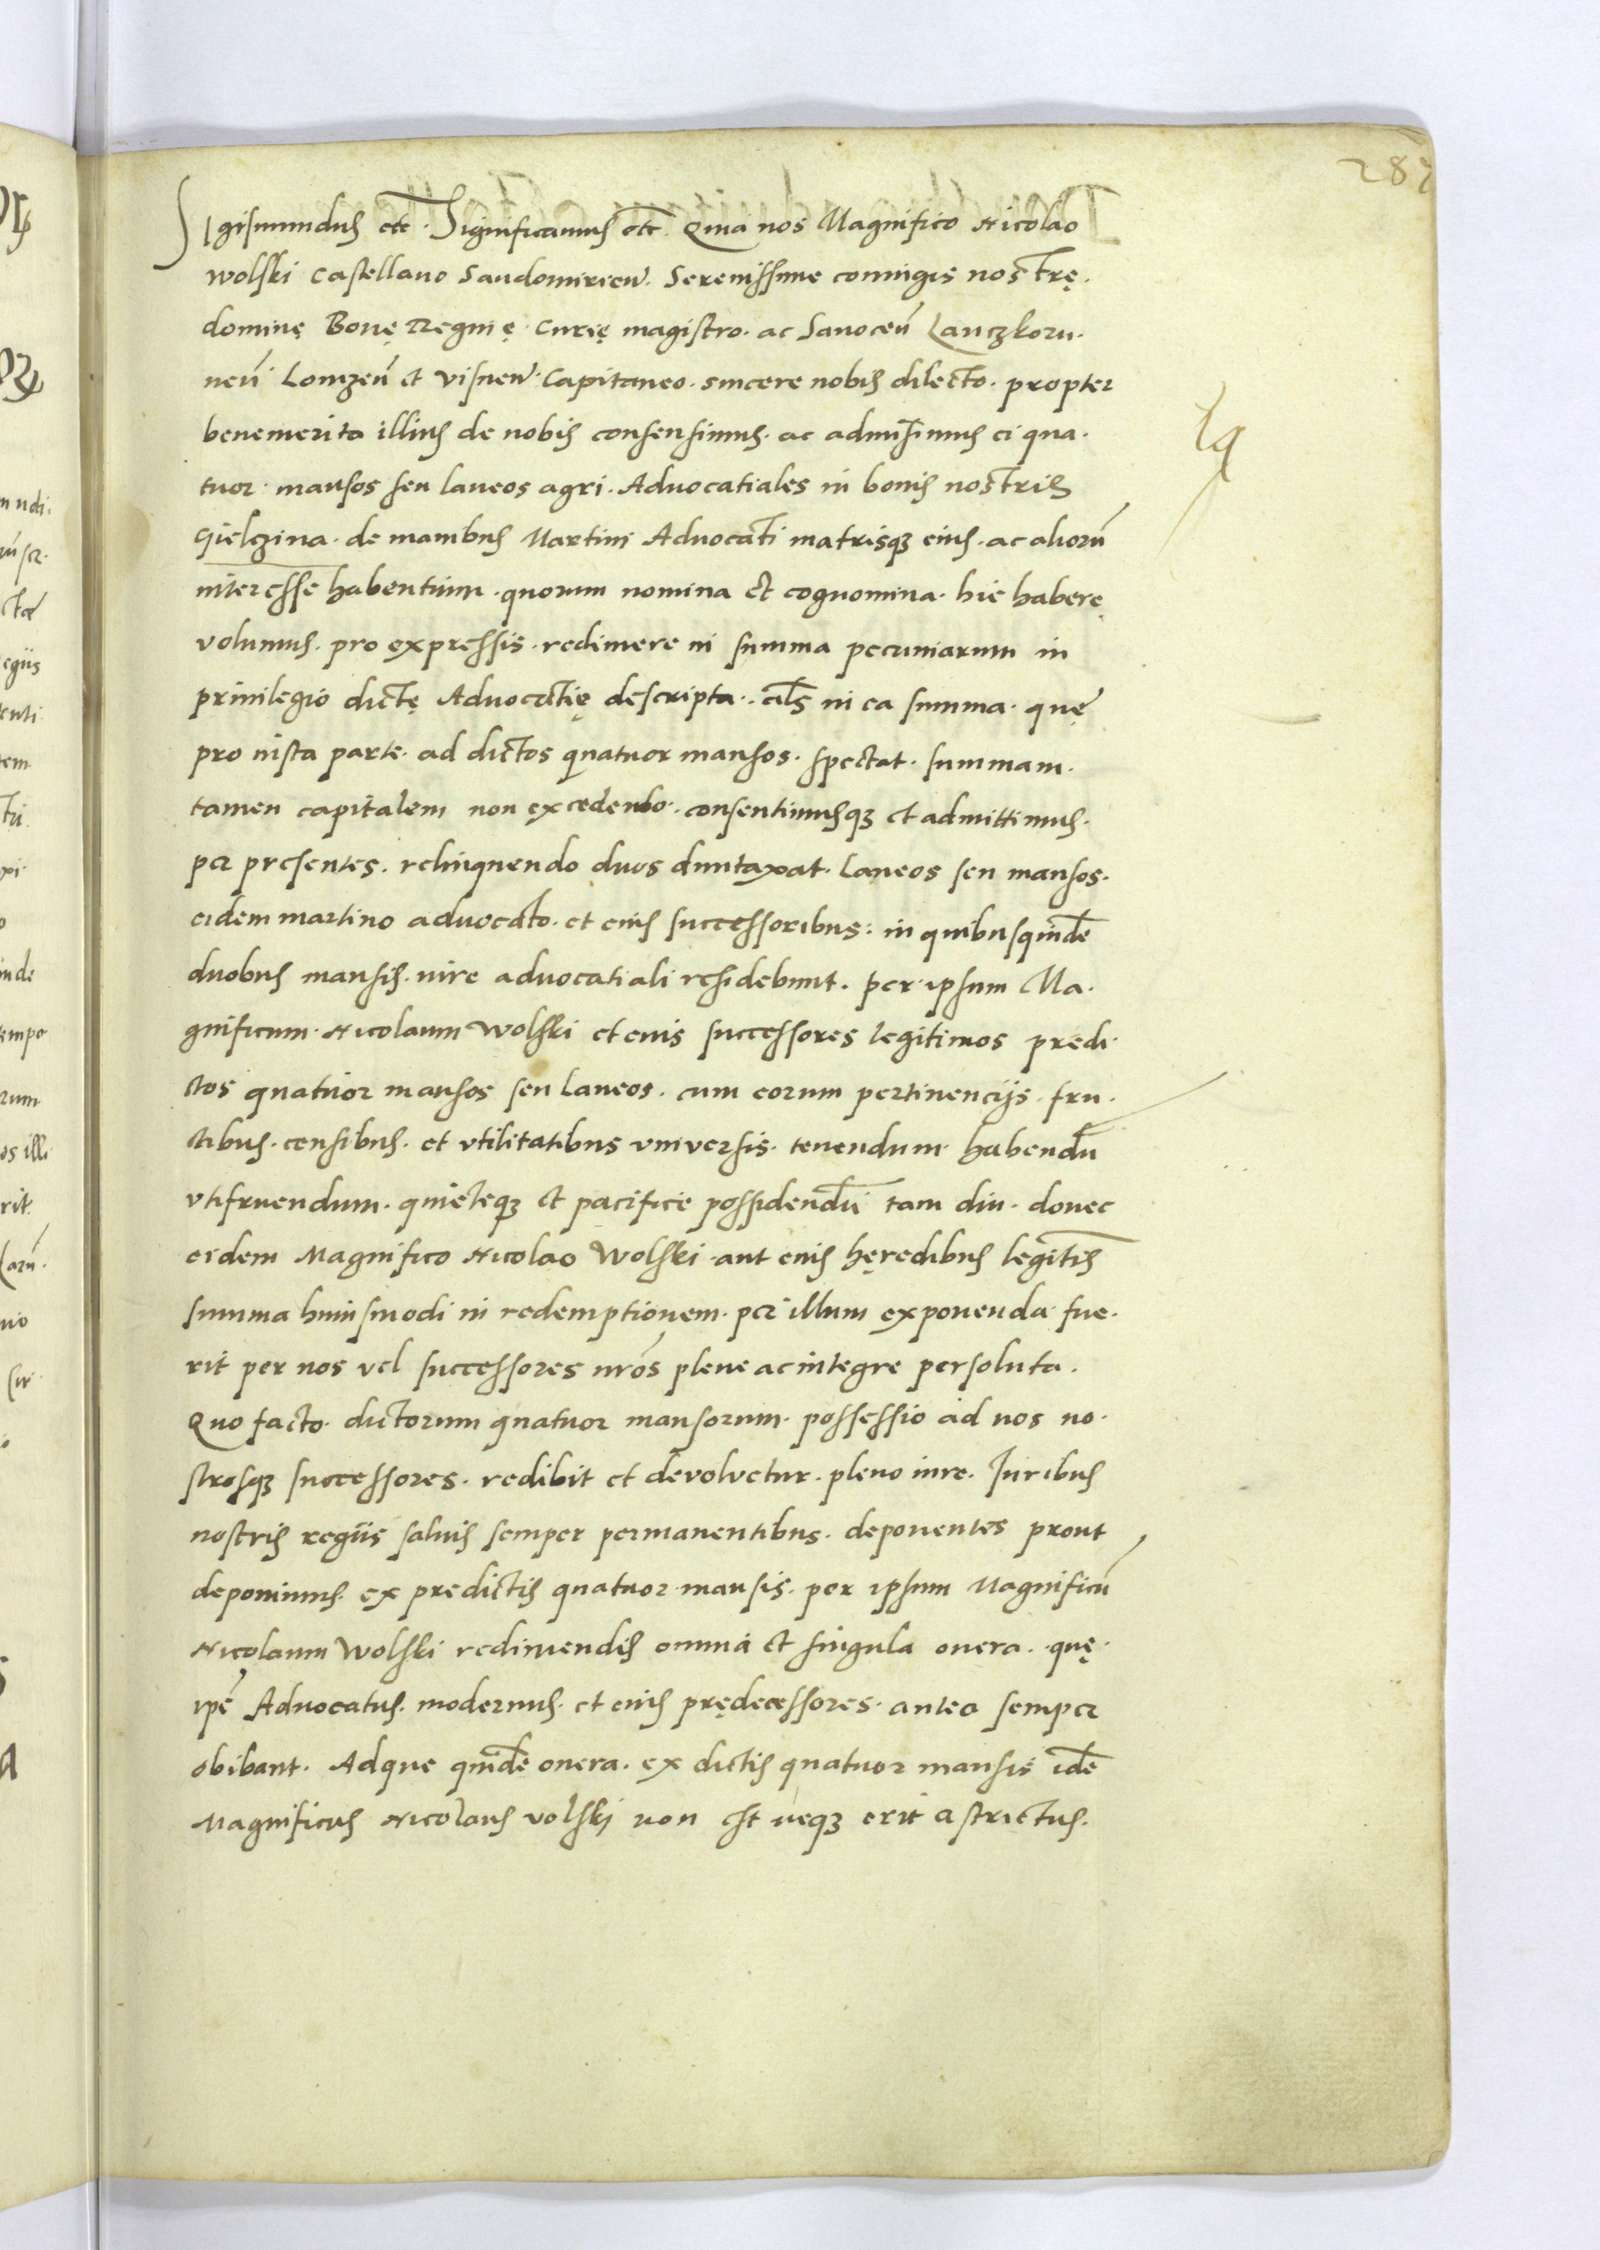 287
Sigismundus etc. Significamus etc. Quia nos Magnifico Nicolao
Wolski Castellano Sandomirien. Serenissime coniugis nostrę.
dominę Bonę Reginę. Curię magistro. ac Sanoceñ Lanczkoru-
neñ Lomzeñ et Visneñ. Capitaneo. sincere nobis dilecto. propter
benemerita illius de nobis consensimus. ac admisimus ei qua-
tuor. mansos seu laneos agri. Advocatiales in bonis nostris
Gielczina. de manibus Martini Advocati matrisqȝ eius. ac aliorũ
interesse habentium. quorum nomina et cognomina. hic habere
volumus. pro expressis. redimere in summa pecuniarum in
privilegio dictę Advocatię descripta. als in ea summa. quę
pro iusta parte. ad dictos quatuor mansos. spectat. summam.
tamen capitalem non excedendo. consentimusqȝ et admittimus.
per presentes. relinquendo duos duntaxat. Laneos seu mansos.
eidem martino advocato. et eius successoribus: in quibusquidẽ
duobus mansis. iure advocatiali residebunt. per ipsum Ma-
gnificum. Nicolaum Wolski et euis successores legitimos predi-
ctos quatuor mansos seu laneos. cum eorum pertinencijs. fru-
ctibus. censibus. et vtilitatibus vniversis. tenendum habendũ
vtifruendum. quieteqȝ et pacifice possidendũ tam diu. donec
eidem Magnifico Nicolao Wolski. aut eius hęredibus legitis
summa huiusmodi in redemptionem. per illum exponenda fue-
rit per nos vel successores nrõs plene ac integre persoluta.
Quo facto. dictorum quatuor mansorum. possessio ad nos no-
strosqȝ successores. redibit et devolvetur. pleno iure. Iuribus
nostris regiis salvis semper permanentibus. deponentes prout
deponimus. ex predictis quatuor mansis. per ipsum Magnificũ
Nicolaum Wolski redimendis omnia et singula onera. quę
ipẽ Advocatus. modernus. et eius prędecessores. antea semper
obibant. Adque quidẽ onera. ex dictis quatuor mansis idẽ
Magnificus Nicolaus volski non est neqȝ erit astrictus.